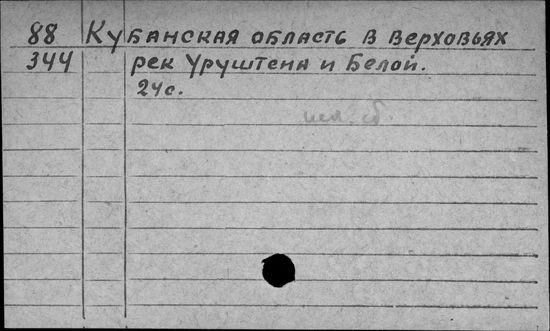 88 Кубанская область в верховьях
344 рек Уруштена и Белой.
24с.